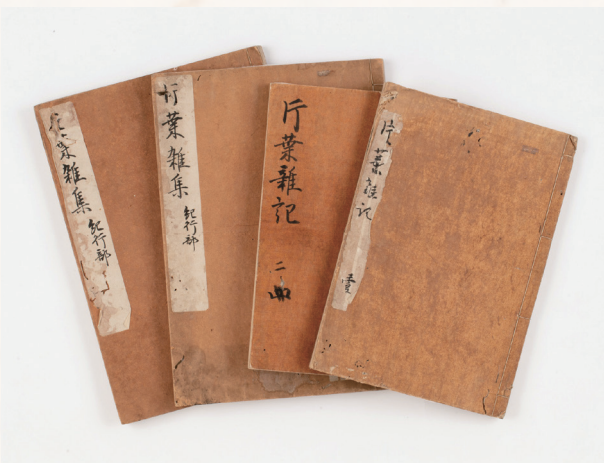 葉雑集 紀行部
葉雑集 紀行部
片葉雜記 二
片葉雑記 壹